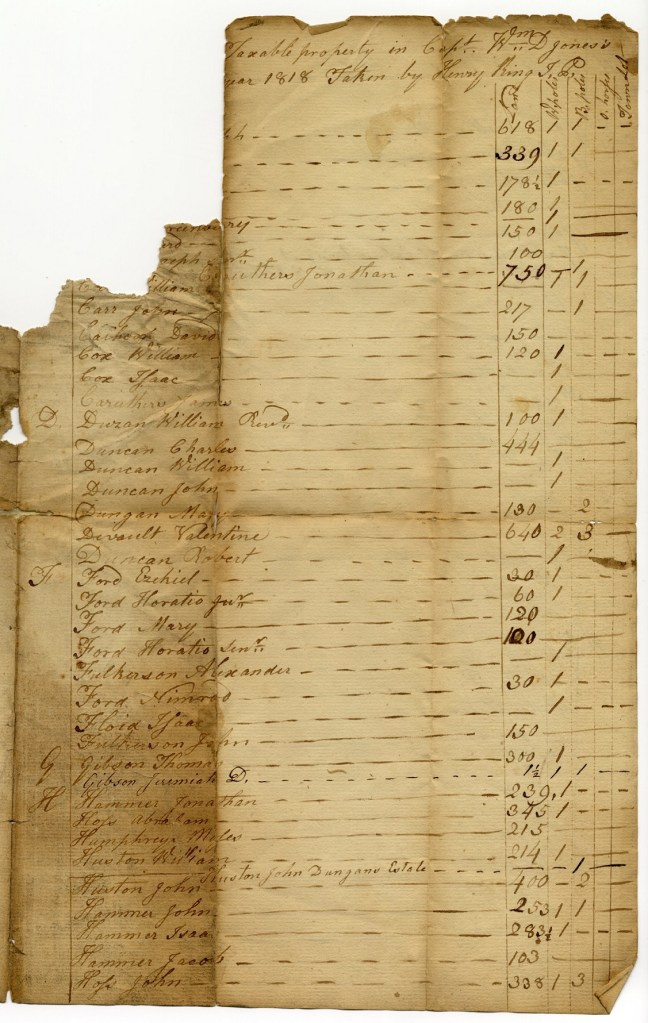 Taxable property in Capt. Wm D Jones's
year 1818 Taken by Henry King J. P.
Land W. poles B. poles S. horses Town Lot
h 618 1 1
339 1 1
178½ 1
180 1
150 1
100
Caruthers Jonathan 750 1
William 1 1
Carr John 217 1
David 150
Cox William 120 1
Cox Isaac 1
Caruthers James 1
D. Duzan William Revd 100 1
Duncan Charles 444
Duncan William 1
Duncan John 1
Dungan Mary 130 2
Devault Valentine 640 2 3
Duncan Robert 1
F Ford Ezekiel 20 1
Ford Horatio Junr 60 1
Ford Mary 120
Ford Horatio Senr 100
Fulkerson Alexander 1
Ford Nimrod 30 1
Floid Isaac 1
Fulkerson John 150
G Gibson Thomas 300 1
Gibson Jeremiah D. 1½ 1 1
H Hammer Jonathan 239 1
Hoss Abraham 345 1
Humphreys Moles 215
Huston William 214 1
Huston John Dungans Estate 1
Huston John 400 2
Hammer John 253 1 1
Hammer Isaac 283½ 1
Hammer Jacob 103
Hoss John 338 1 3